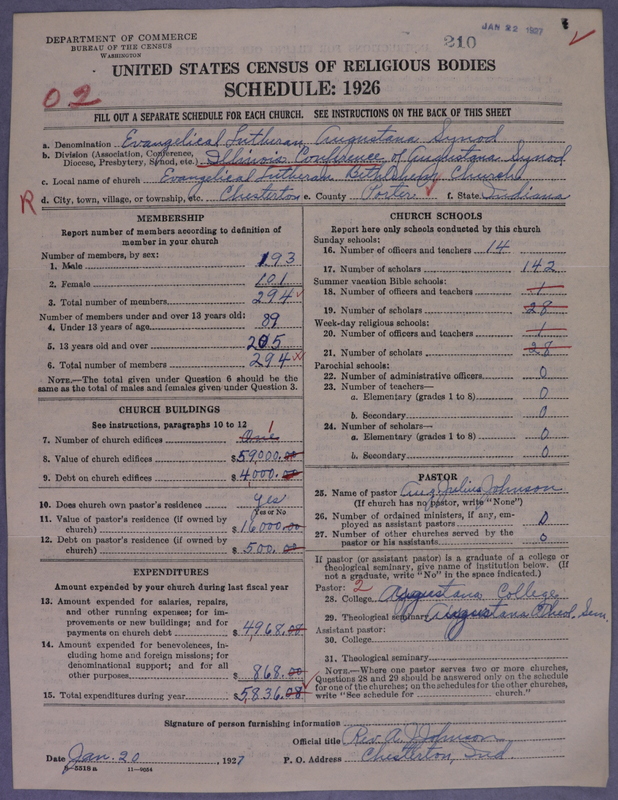 JAN 22 1927
DEPARTMENT OF COMMERCE
BUREAU OF THE CENSUS
WASHINGTON
210
UNITED STATES CENSUS OF RELIGIOUS BODIES
SCHEDULE: 1926
02
FILL OUT A SEPARATE SCHEDULE FOR EACH CHURCH. SEE INSTRUCTIONS ON THE BACK OF THIS SHEET
a. Denomination Evangelical Lutheran Augustana Synod
b. Division (Association, Conference, Diocese, Presbytery, Synod, etc.) Illinois Conference of Augustana Synod
c. Local name of church Evangelical Lutheran Bethlehem Church
R
d. City, town, village, or township, etc. Chesterton e. County Porter f. State Indiana
MEMBERSHIP
Report number of members according to definition of member in your church
Number of members, by sex:
1. Male 193
2. Female 101
3. Total number of members 294
Number of members under and over 13 years old:
4. Under 13 years of age 89
5. 13 years old and over 205
6. Total number of members 294
NOTE.—The total given under Question 6 should be the same as the total of males and females given under Question 3.
CHURCH BUILDINGS
See instructions, paragraphs 10 to 12
7. Number of church edifices One 1
8. Value of church edifices $59000.00
9. Debt on church edifices $4000.00
10. Does church own pastor's residence? yes
Yes or No
11. Value of pastor's residence (if owned by church) $16000.00
12. Debt on pastor's residence (if owned by church) $500.00
EXPENDITURES
Amount expended by church during last fiscal year
13. Amount expended for salaries, repairs, and other running expenses; for improvements or new buildings; and for payments on church debt $4968.08
14. Amount expended for benevolences, including home and foreign missions; for denominational support; and for all other purposes $868.00
15. Total expenditures during year $5836.08
CHURCH SCHOOLS
Report here only schools conducted by this church
Sunday schools:
16. Number of officers and teachers 14
17. Number of scholars 142
Summer vacation Bible schools:
18. Number of officers and teachers 1
19. Number of scholars 28
Week-day religious schools:
20. Number of officers and teachers 1
21. Number of scholars 28
Parochial schools:
22. Number of administrative officers 0
23. Number of teachers—
a. Elementary (grades 1 to 8) 0
b. Secondary 0
24. Number of scholars—
a. Elementary (grades 1 to 8) 0
b. Secondary 0
PASTOR
25. Name of pastor Aug. Julius Johnson
(If church has no pastor, write "None")
26. Number of ordained ministers, if any, employed as assistant pastors 0
27. Number of other churches served by the pastor or his assistants 0
If pastor (or assistant pastor) is a graduate of a college or theological seminary, give name of institution below. (If not a graduate, write "No" in the space indicated.)
Pastor: 2
28. College Augustana College
29. Theological seminary Augustana Theol. Sem.
Assistant pastor:
30. College
31. Theological seminary
NOTE.—Where one pastor serves two or more churches, Questions 28 and 29 should be answered only on the schedule for one of the churches; on the schedules for the other churches, write "See schedule for church."
Signature of person furnishing information
Official title Rev. A. J. Johnson
Date Jan. 20, 1927 P. O. Address Chesterton, Ind.
8-5518 a 11-9054